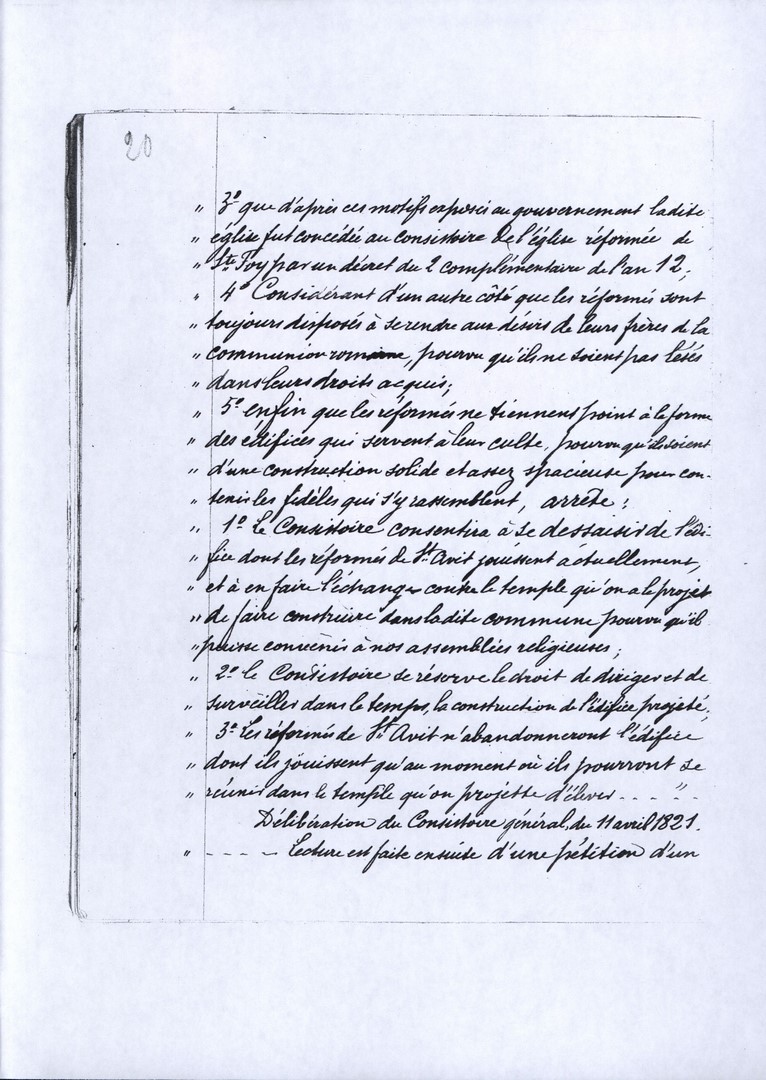 20
" 3º que d'après ces motifs exposés au gouvernement ladite
" église fut concédée au consistoire de l'église réformée de
" Ste Foy par un décret du 2 complémentaire de l'an 12;
" 4º Considérant d'un autre côté que les réformés sont
" toujours disposés à se rendre aux désirs de leurs frères de la
" communion romaine, pourvu qu'ils ne soient pas lésés
" dans leurs droits acquis;
" 5º enfin que les réformés ne tiennent point à la forme
" des édifices qui servent à leur culte, pourvu qu'ils soient
" d'une construction solide et assez spacieuse pour con-
" tenir les fidèles qui s'y rassemblent, arrête:
" 1º Le Consistoire consentira à se dessaisir de l'édi-
" fice dont les réformés de St Avit jouissent actuellement,
" et à en faire l'échange contre le temple qu'on a le projet
" de faire construire dans ladite commune pourvu qu'il
" puisse convenir à nos assemblées religieuses;
" 2º le Consistoire se réserve le droit de diriger et de
" surveiller dans le temps, la construction de l'édifice projeté;
" 3º Les réformés de St Avit n'abandonneront l'édifice
" dont ils jouissent qu'au moment où ils pourront se
" réunir dans le temple qu'on projette d'élever - - - "
Délibération du Consistoire général, du 11 avril 1821.
" - - - - Lecture est faite ensuite d'une pétition d'un